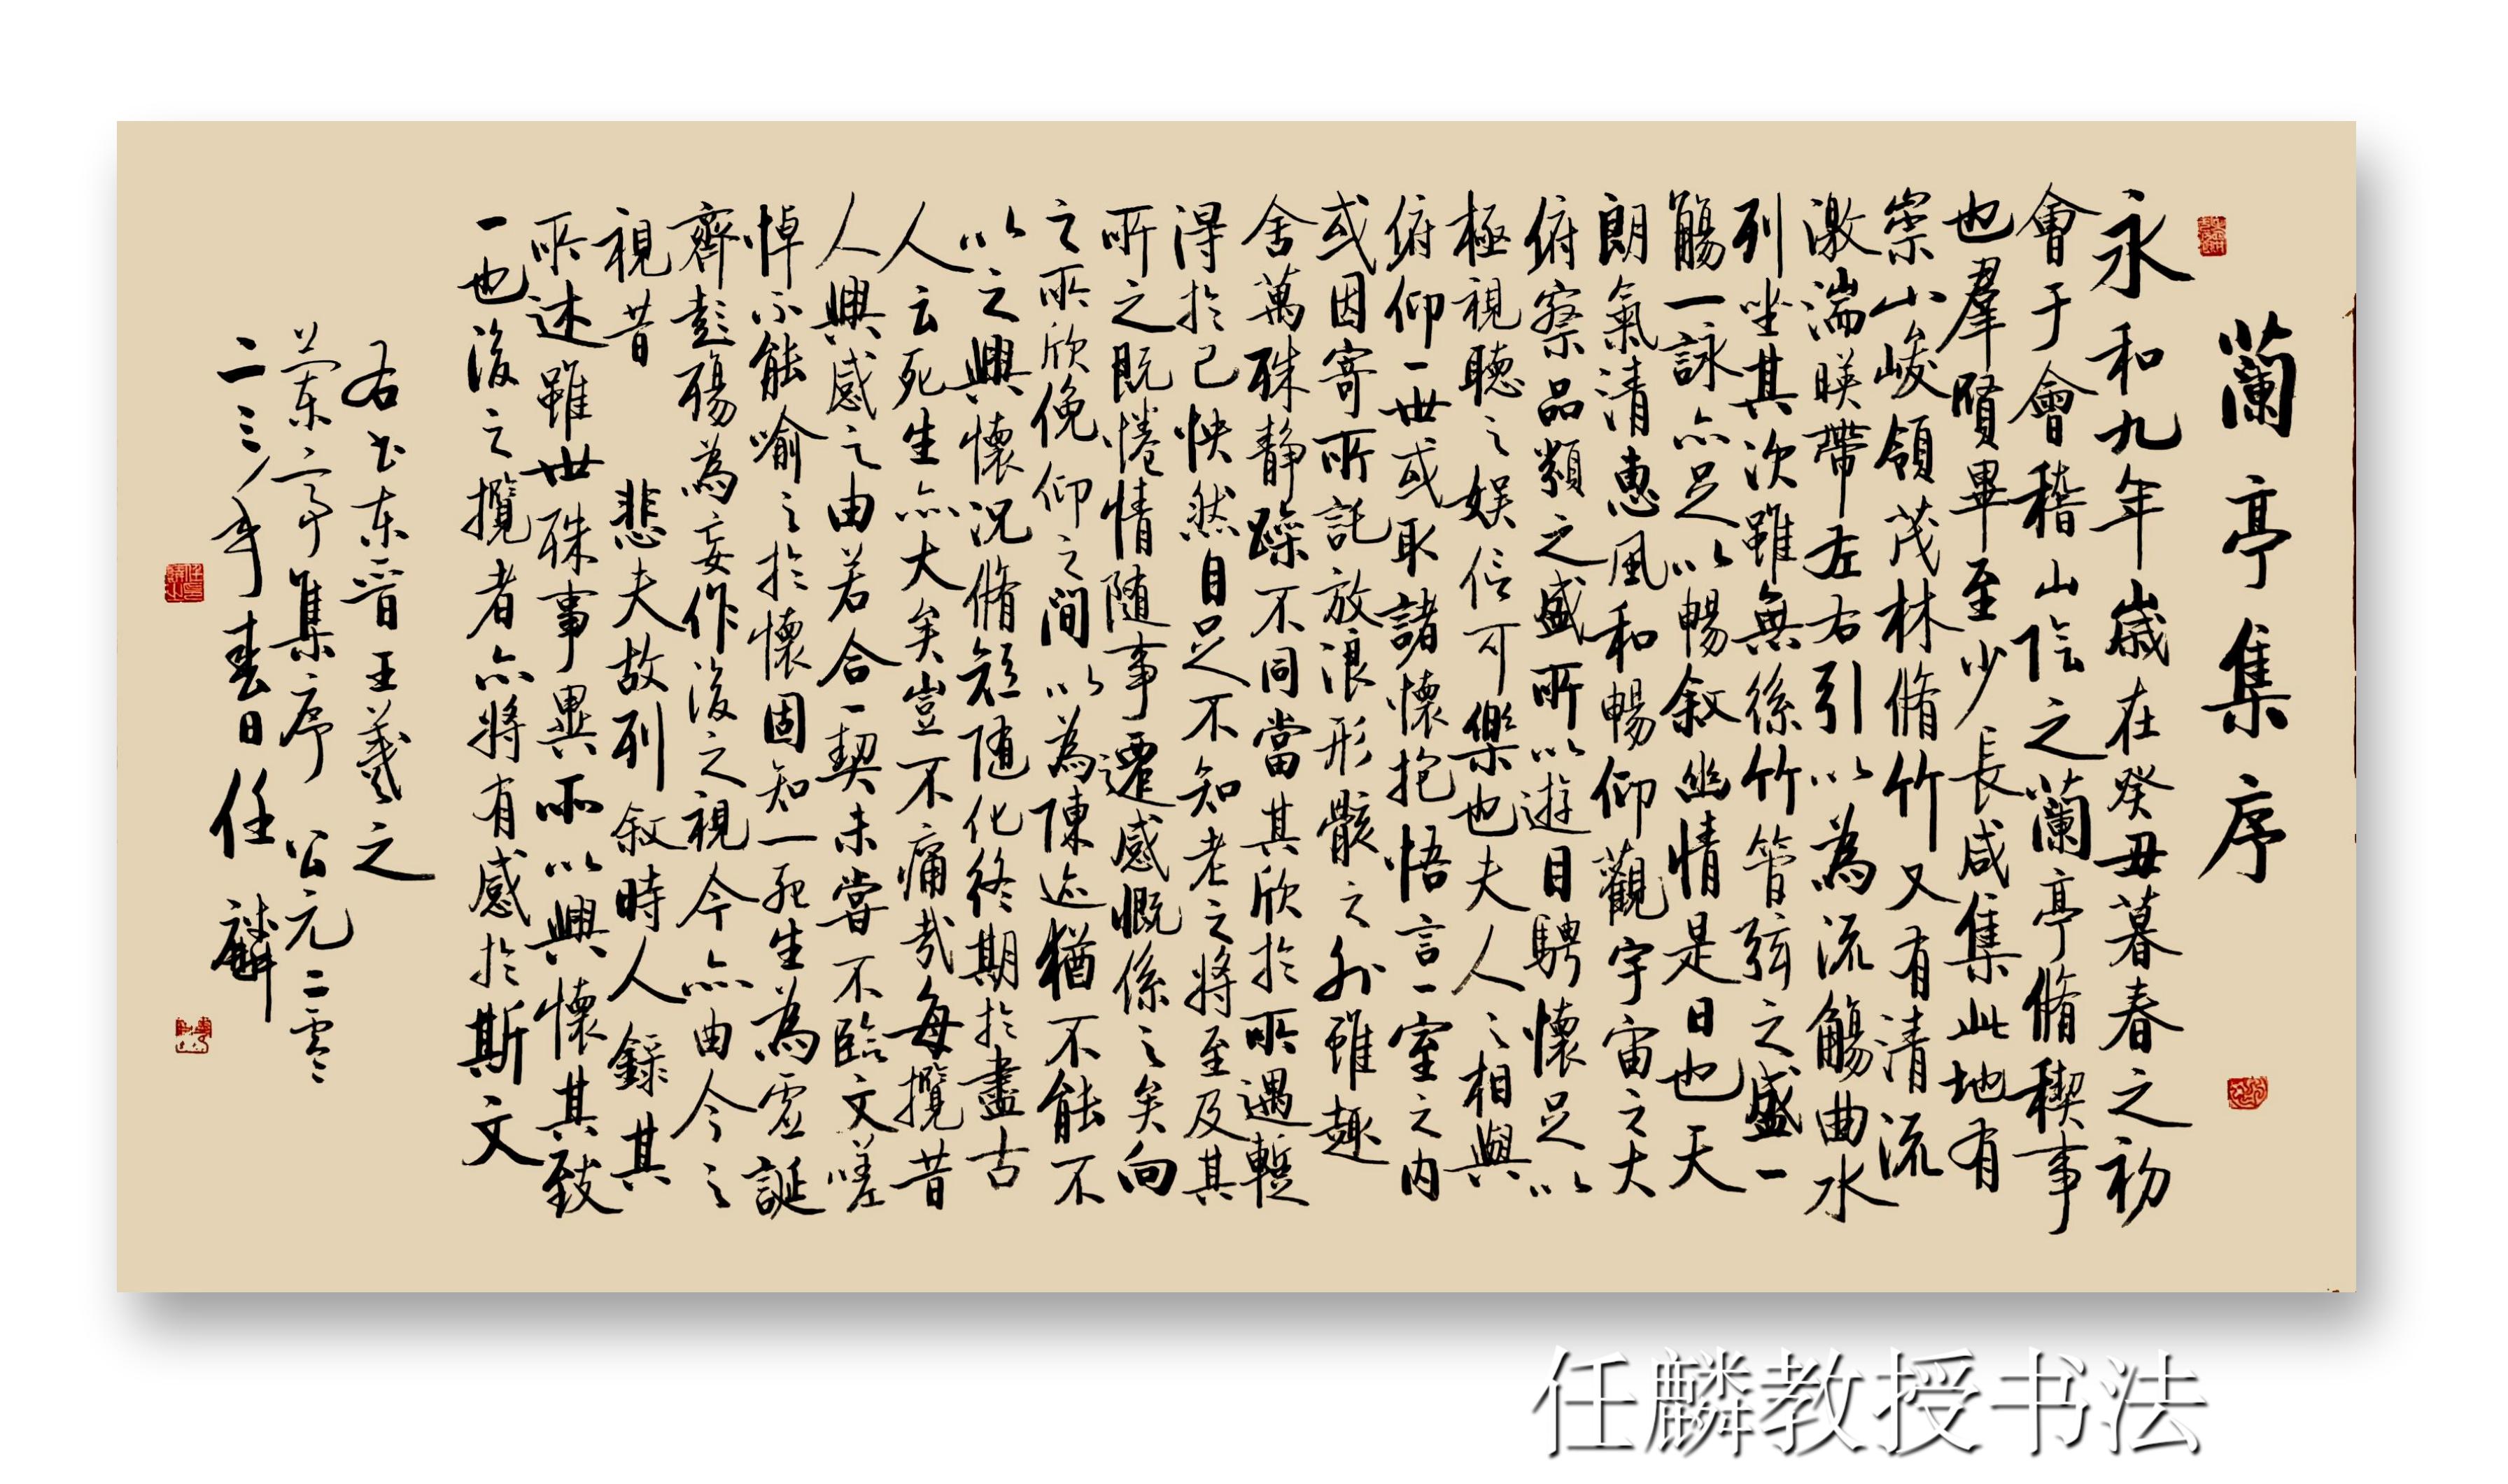 蘭亭集序
永和九年歲在癸丑暮春之初
會于會稽山陰之蘭亭脩稧事
也羣賢畢至少長咸集此地有
崇山峻領茂林脩竹又有清流
激湍暎帶左右引以為流觴曲水
列坐其次雖無絲竹管弦之盛一
觴一詠亦足以暢敘幽情是日也天
朗氣清惠風和暢仰觀宇宙之大
俯察品類之盛所以遊目騁懷足以
極視聽之娛信可樂也夫人之相與
俯仰一世或取諸懷抱悟言一室之內
或因寄所託放浪形骸之外雖趣
舍萬殊靜躁不同當其欣於所遇暫
得於己怏然自足不知老之將至及其
所之既惓情隨事遷感慨係之矣向
之所欣俛仰之間以為陳迹猶不能不
以之興懷況脩短隨化終期於盡古
人云死生亦大矣豈不痛哉每攬昔
人興感之由若合一契未嘗不臨文嗟
悼不能喻之於懷固知一死生為虛誕
齊彭殤為妄作後之視今亦由今之
視昔 悲夫故列敘時人錄其
所述雖世殊事異所以興懷其致
一也後之攬者亦將有感於斯文
右书东晉王羲之
兰亭集序 公元二零
二三年春日任麟
任麟教授书法